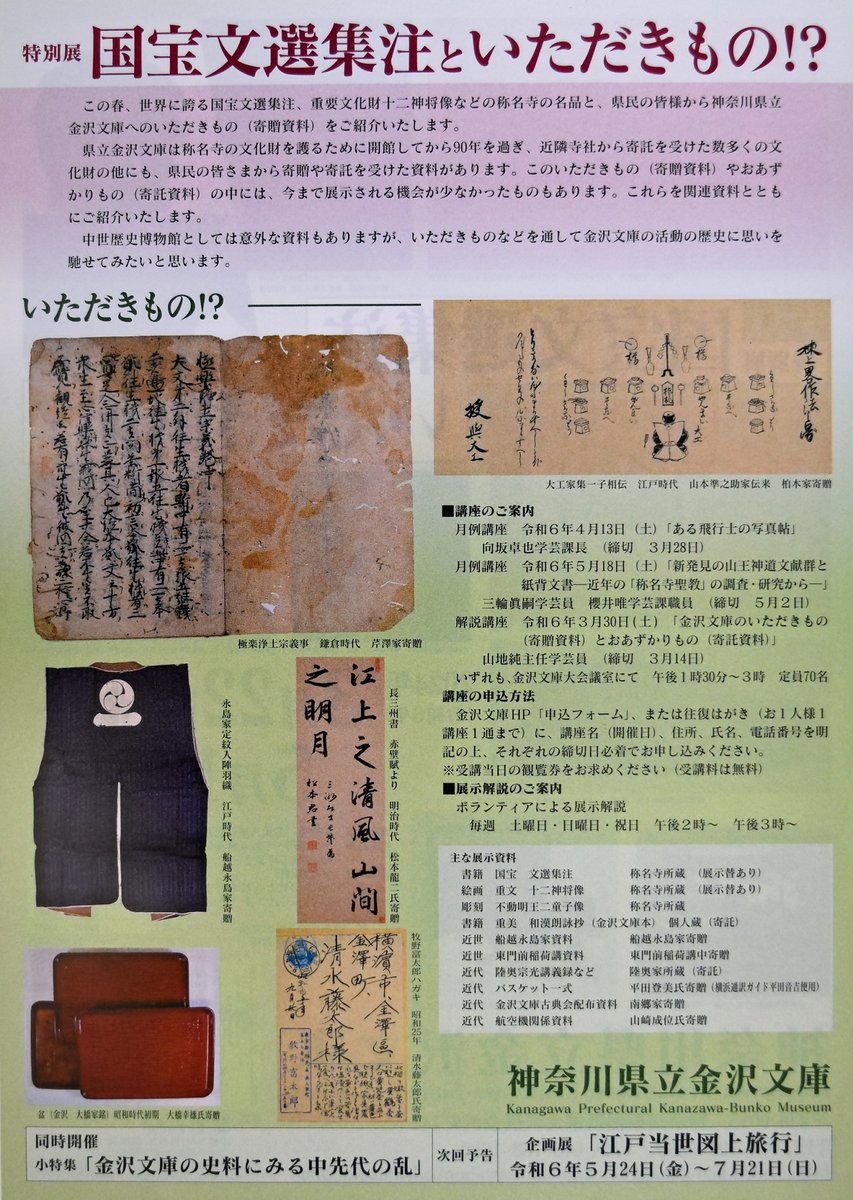 特別展 国宝文選集注といただきもの!?
この春、世界に誇る国宝文選集注、重要文化財十二神将像などの称名寺の名品と、県民の皆様から神奈川県立
金沢文庫へのいただきもの（寄贈資料）をご紹介いたします。
県立金沢文庫は称名寺の文化財を護るために開館してから90年を過ぎ、近隣寺社から寄託を受けた数多くの文
化財の他にも、県民の皆さまから寄贈や寄託を受けた資料があります。このいただきもの（寄贈資料）やおあず
かりもの（寄託資料）の中には、今まで展示される機会が少なかったものもあります。これらを関連資料ととも
にご紹介いたします。
中世歴史博物館としては意外な資料もありますが、いただきものなどを通して金沢文庫の活動の歴史に思いを
馳せてみたいと思います。
いただきもの!?
極楽浄土宗義事 鎌倉時代 芹澤家寄贈
大工家集一子相伝 江戸時代 山本準之助家伝来 柏木家寄贈
永島家定紋入陣羽織 江戸時代 船越永島家寄贈
江上之清風山間
之明月
長三州書 赤壁賦より 明治時代 松本龍二氏寄贈
盆（金沢 大橋家銘）昭和時代初期 大橋幸雄氏寄贈
横濱市金澤區
金澤町、
清水藤太郎様
牧野富太郎
牧野富太郎ハガキ 昭和25年 清水藤太郎氏寄贈
■講座のご案内
月例講座 令和6年4月13日（土）「ある飛行士の写真帖」
向坂卓也学芸課長 （締切 3月28日）
月例講座 令和6年5月18日（土）「新発見の山王神道文献群と
紙背文書―近年の「称名寺聖教」の調査・研究から―」
三輪眞嗣学芸員 櫻井唯学芸課職員 （締切 5月2日）
解説講座 令和6年3月30日（土）「金沢文庫のいただきもの
（寄贈資料）とおあずかりもの（寄託資料）」
山地純主任学芸員 （締切 3月14日）
いずれも、金沢文庫大会議室にて 午後1時30分～3時 定員70名
講座の申込方法
金沢文庫HP「申込フォーム」、または往復はがき（お1人様1
講座1通まで）に、講座名（開催日）、住所、氏名、電話番号を明
記の上、それぞれの締切日必着でお申し込みください。
※受講当日の観覧券をお求めください（受講料は無料）
■展示解説のご案内
ボランティアによる展示解説
毎週 土曜日・日曜日・祝日 午後2時～ 午後3時～
主な展示資料
書籍 国宝 文選集注 称名寺所蔵 （展示替あり）
絵画 重文 十二神将像 称名寺所蔵 （展示替あり）
彫刻 不動明王二童子像 称名寺所蔵
書籍 重美 和漢朗詠抄（金沢文庫本） 個人蔵（寄託）
近世 船越永島家資料 船越永島家寄贈
近世 東門前稲荷講資料 東門前稲荷講中寄贈
近代 陸奥宗光講義録など 陸奥家所蔵（寄託）
近代 バスケット一式 平田登美氏寄贈（横浜通訳ガイド平田音吉使用）
近代 金沢文庫古典会配布資料 南郷家寄贈
近代 航空機関係資料 山崎成位氏寄贈
神奈川県立金沢文庫
Kanagawa Prefectural Kanazawa-Bunko Museum
同時開催
小特集「金沢文庫の史料にみる中先代の乱」
次回予告
企画展「江戸当世図上旅行」
令和6年5月24日（金）～7月21日（日）